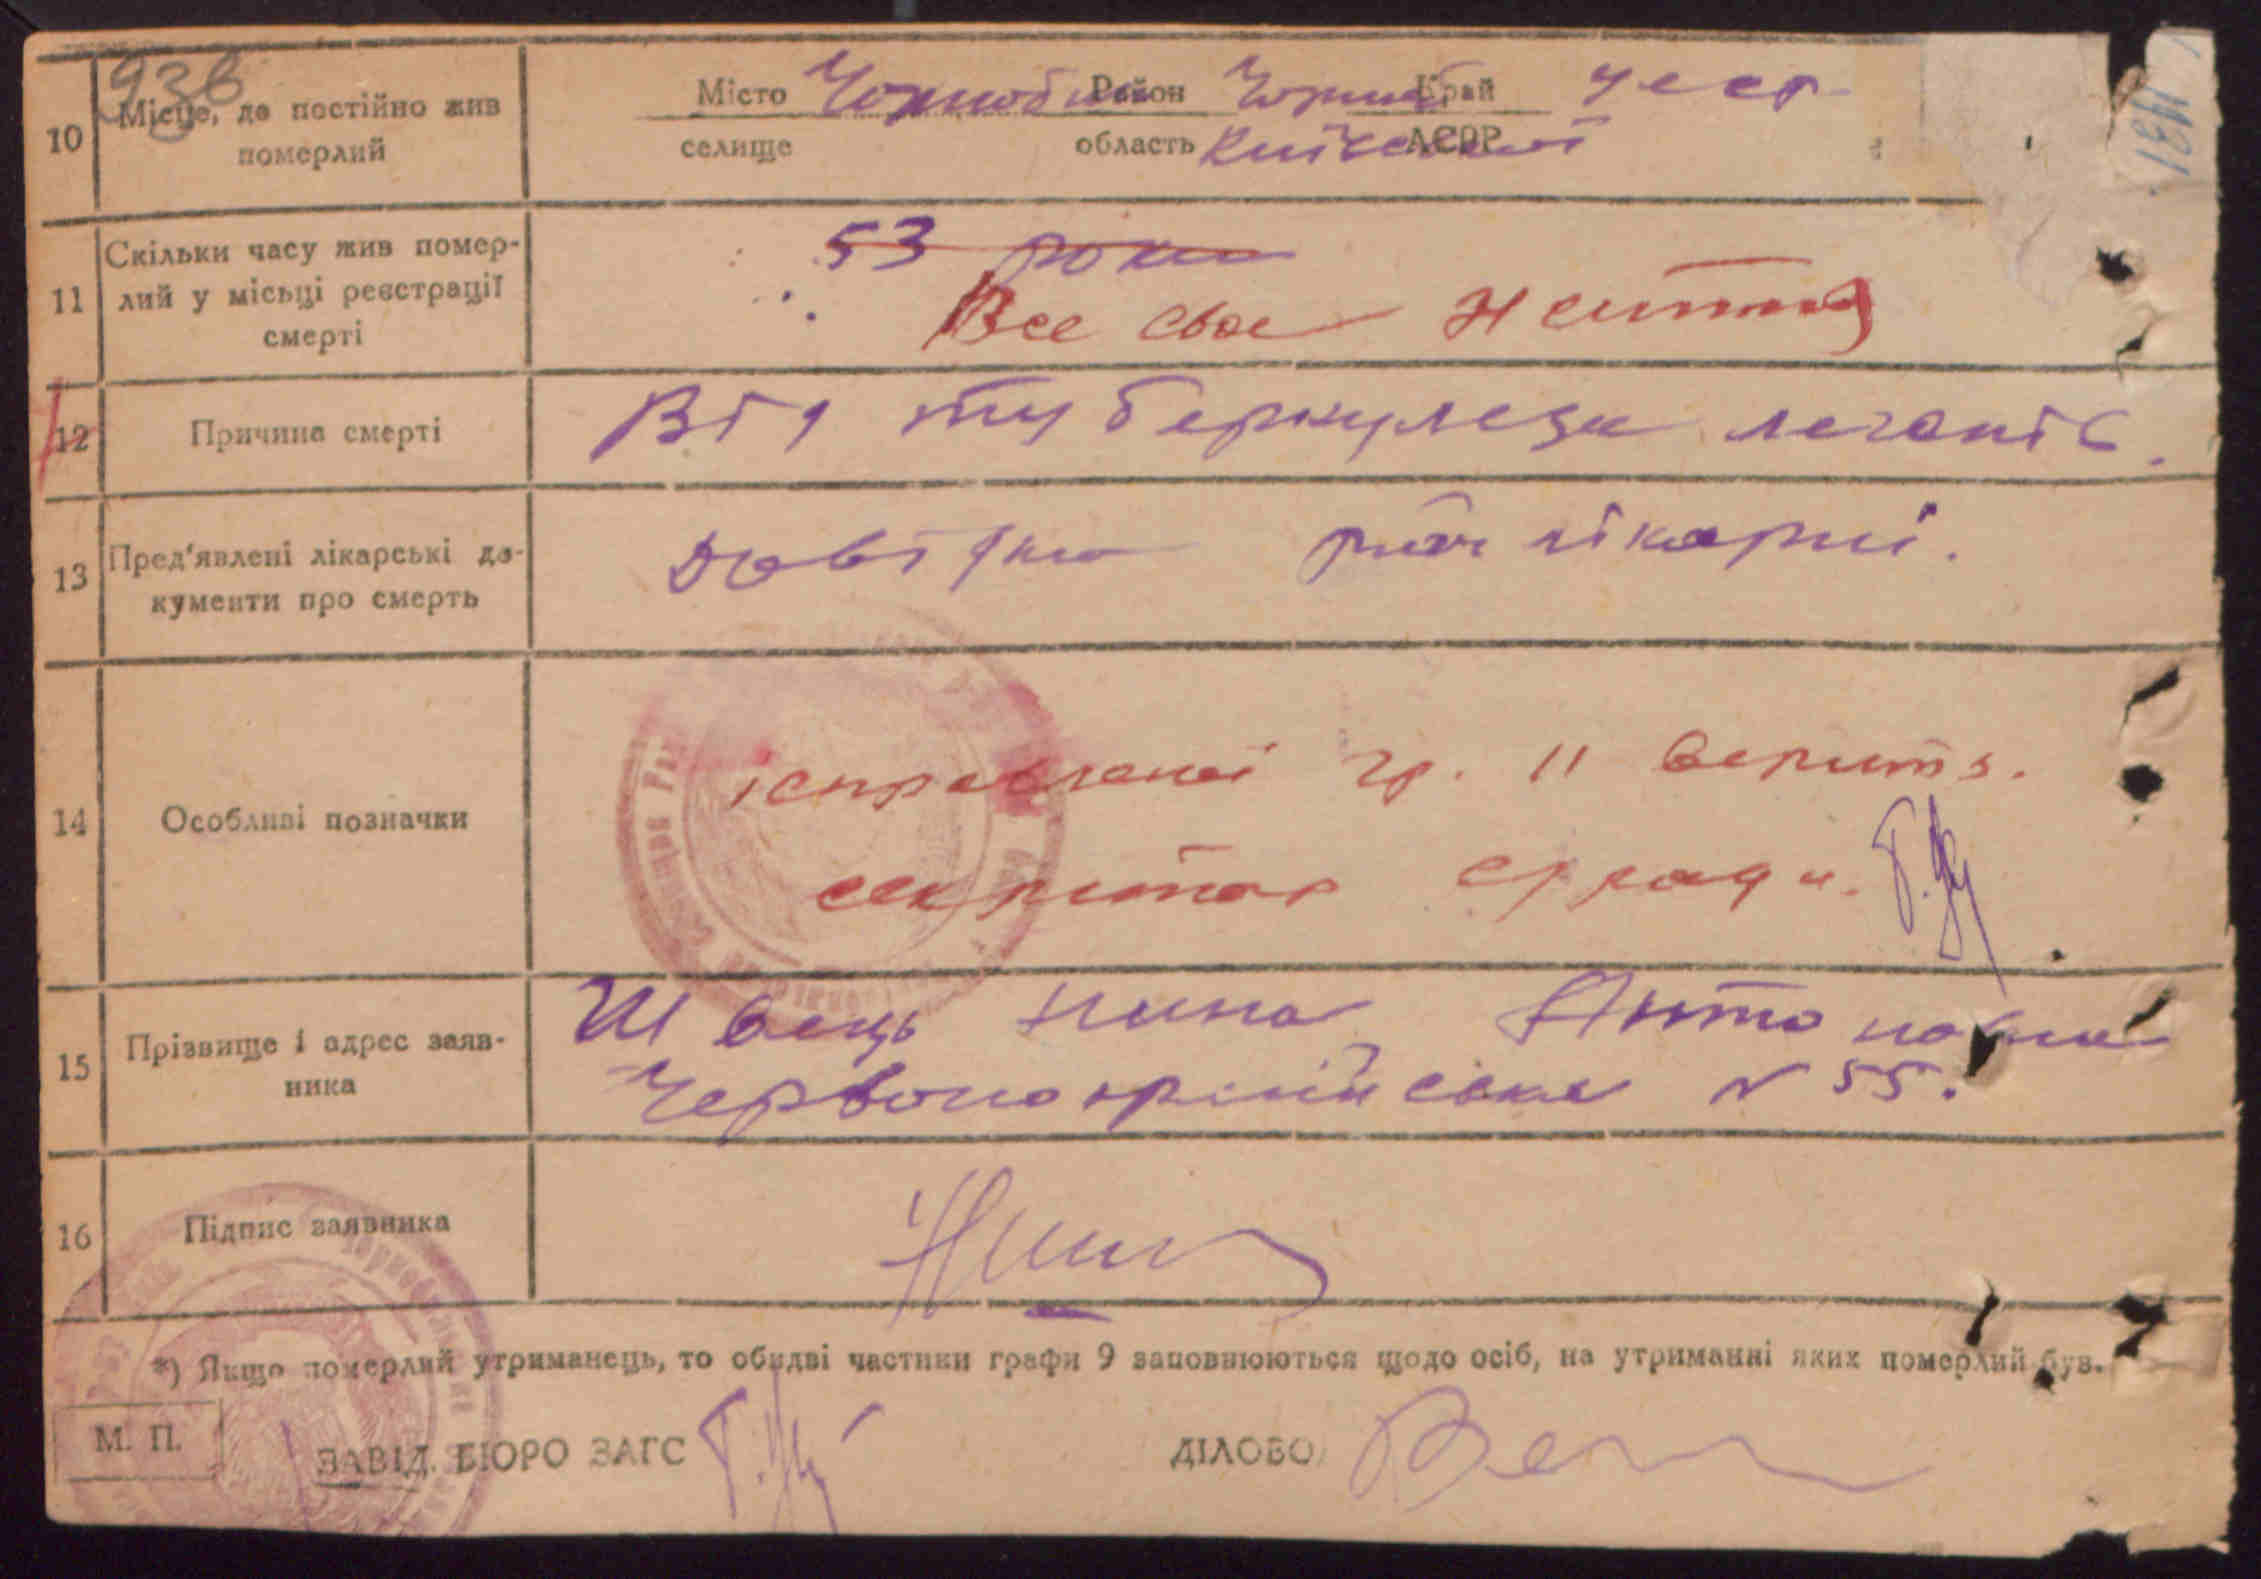 936
10
Місце, де постійно жив
померлий
Місто Чорнобиль Район Чорноб Край УССР
селище область Київської АСРР
11
Скільки часу жив помер-
лий у місьці реєстрації
смерті
53 роки
Все своє життя
12
Причина смерті
Від туберкулеза легенів.
13
Пред'явлені лікарські до-
кументи про смерть
Довідка рай лікарні.
14
Особливі позначки
гр. 11
секритар с/ради.
15
Прізвище і адрес заяв-
ника
Швець Нина Антоновна
Червоноармійська N 55.
16
Підпис заявника
*) Якщо померлий утриманець, то обидві частини графи 9 заповнюються щодо осіб, на утриманні яких померлий був.
М. П.
ЗАВІД. БЮРО ЗАГС
ДІЛОВО